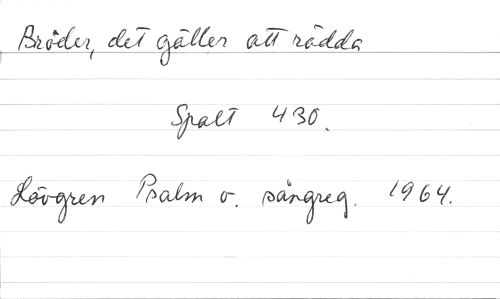 Bröder, det gäller att rädda
Spalt 430.
Lövgren Psalm o. sångreg. 1964.